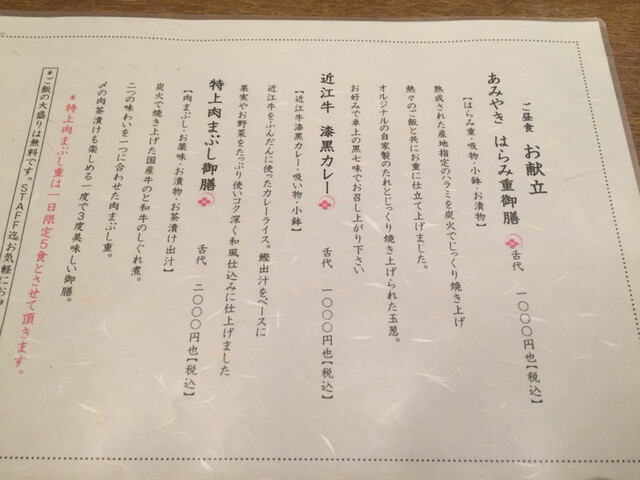 ご昼食 お献立
あみやき はらみ重御膳 舌代 一〇〇〇円也【税込】
【はらみ重・吸物・小鉢・お漬物】
熟成された産地指定のハラミを炭火でじっくり焼き上げ
熱々のご飯と共にお重に仕立て上げました。
オルジナルの自家製のたれとじっくり焼き上げられた玉葱。
お好みで卓上の黒七味でお召し上がり下さい
近江牛 漆黒カレー 舌代 一〇〇〇円也【税込】
【近江牛漆黒カレー・吸い物・小鉢】
近江牛をふんだんに使ったカレーライス。鰹出汁をベースに
果実やお野菜をたっぷり使いコク深く和風仕込みに仕上げました
特上肉まぶし御膳 舌代 二〇〇〇円也【税込】
【肉まぶし・お薬味・お漬物・お茶漬け出汁】
炭火で焼き上げた国産牛のと和牛のしぐれ煮。
二つの味わいを一つに合わせた肉まぶし重。
〆の肉茶漬けも楽しめる一度で3度美味しい御膳。
*特上肉まぶし重は一日限定5食とさせて頂きます。
*ご飯の大盛りは無料です。STAFF迄お気軽にお